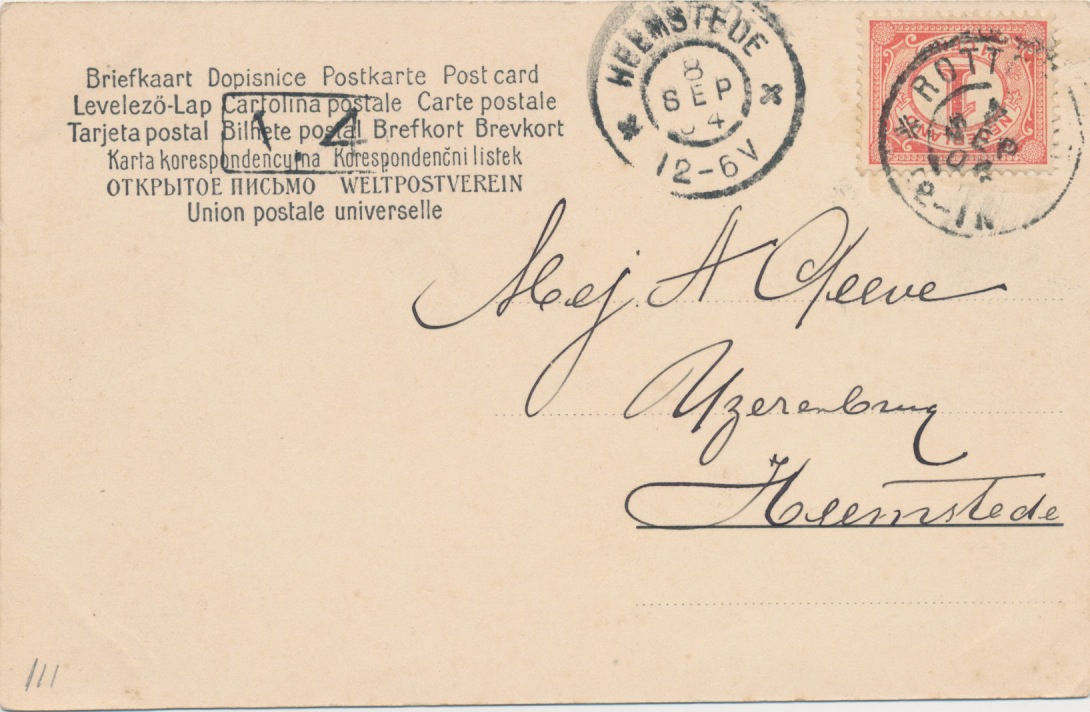 Briefkaart Dopisnice Postkarte Post card
Levelező-Lap Cartolina postale Carte postale
Tarjeta postal Bilhete postal Brefkort Brevkort
Karta korespondencyjna Korespondenční listek
ОТКРЫТОЕ ПИСЬМО WELTPOSTVEREIN
Union postale universelle
1.4
HEEMSTEDE
8
SEP
04
12-6V
ROTT
SEP
04
NEDERLAND
1
Mej. A
Yzerenbrug
Heemstede
111